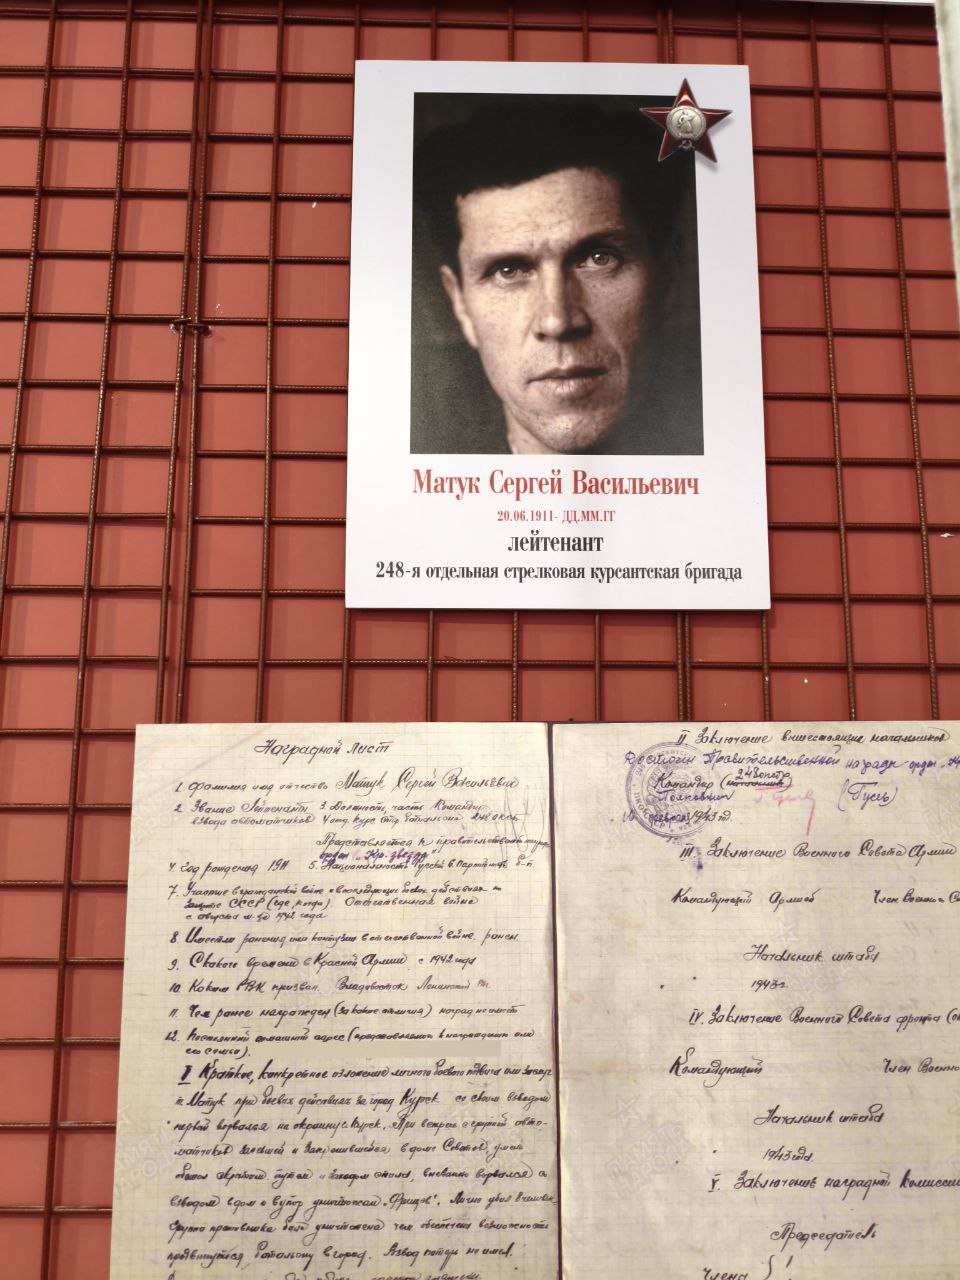 Матук Сергей Васильевич
20.06.1911- ДД.ММ.ГГ
лейтенант
248-я отдельная стрелковая курсантская бригада
Наградной лист
1. Фамилия имя отчество Матук Сергей Васильевич
2. Звание Лейтенант 3. Должность, часть Командир
взвода автоматчиков 4 отд. курс. стр. батальона 248 оксб.
Представляется к правительственной
орден "Кр. звезда"
4. Год рождения 1911 5. Национальность русский 6. Партийность б-п.
7. Участие в гражданской войне и последующих боевых действиях по
защите СССР (где, когда). Отечественная война
с августа м-ца 1942 года
8. Имеет ли ранения или контузии в отечественной войне. ранен
9. С какого времени в Красной Армии с 1942 года
10. Каким РВК призван. Владивосток Ленинский
11. Чем ранее награжден (за какие отличия) наград не имеет
12. Постоянный домашний адрес (представляемого к награждению или
его семьи).
I Краткое, конкретное изложение личного боевого подвига или заслуг
т. Матук при боевых действиях за город Курск со своим взводом
первый ворвался на окраину г. Курск. При встрече с группой авто-
матчиков засевшей и закрепившейся в доме Советов, умело
скрытым путем и заходом с тыла, внезапно ворвался со
взводом в дом и в упор уничтожал "Фрицев". Лично убил 8 человек.
Группа противника была уничтожена чем обеспечена возможность
продвинуться, батальону в город. Взвод потерь не имел.
II Заключение вышестоящих начальников
Достоин Правительственной награды - орден "Кр
Командир 248
Полковник (Гусь)
10 февраля 1943 год.
III Заключение Военного Совета Армии
Командующий Армией Член Военного С
Начальник штаба
1943 г.
IV. Заключение Военного Совета фронта (
Командующий Член Военно
Начальник штаба
1943 года.
V. Заключение наградной комиссии
Председатель
Члены